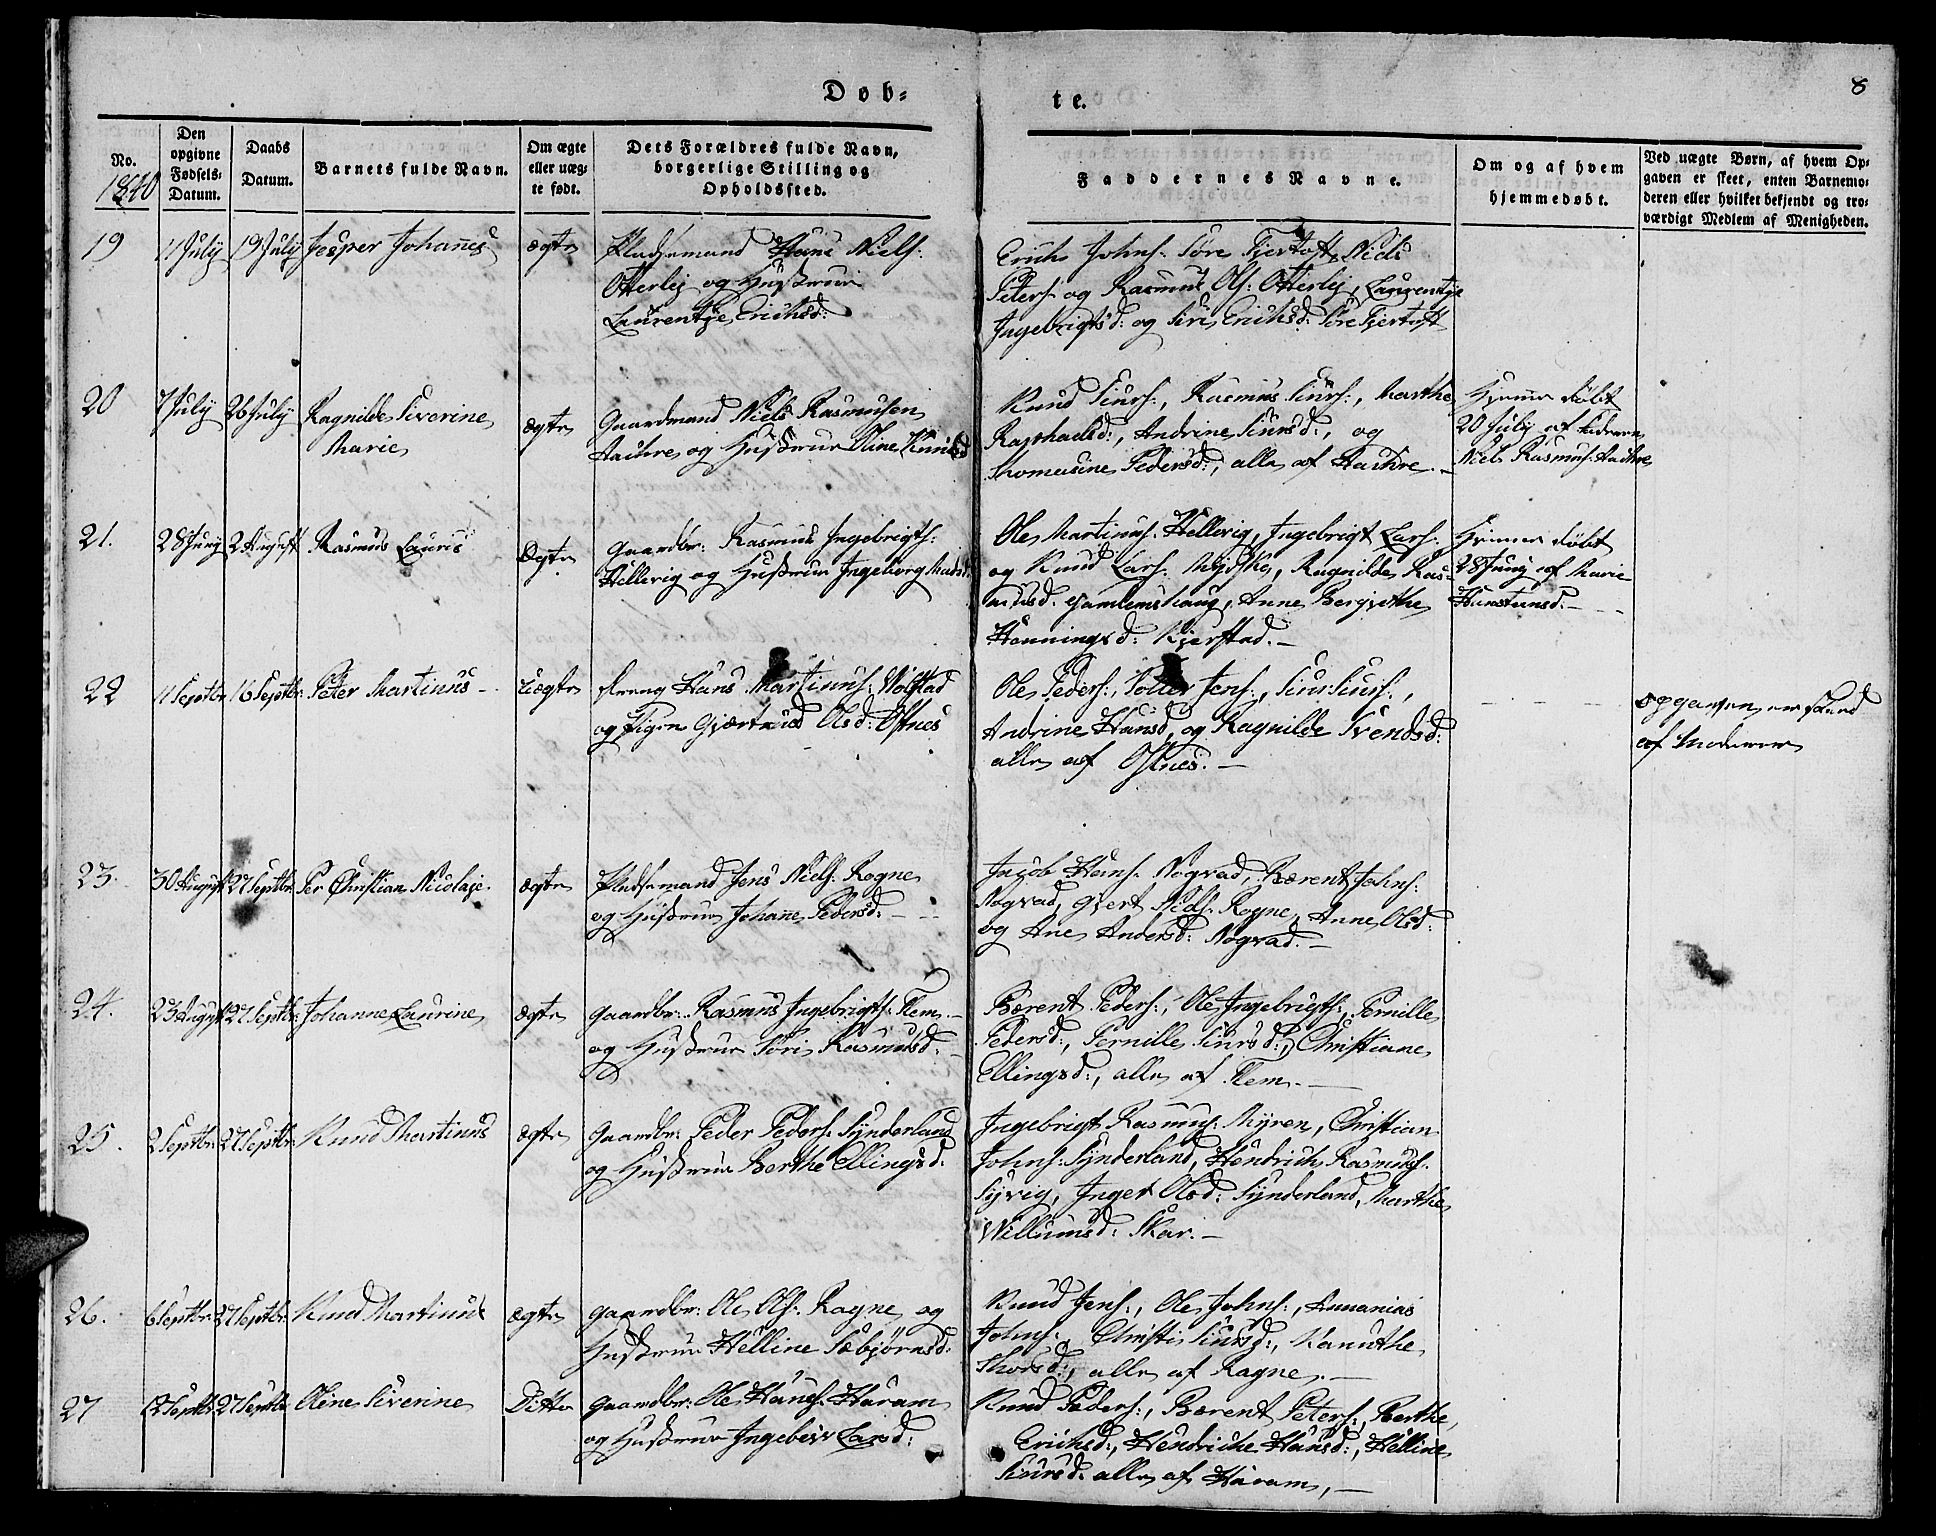 Døb-
te.
8
No.
1840
Den
opgivne
Fødsels-
Datum.
Daabs
Datum.
Barnets fulde Navn.
Om ægte
eller uæg-
te født.
Dets Forældres fulde Navn,
borgerlige Stilling og
Opholdssted.
Faddernes Navne.
Om og af hvem
hjemmedøbt.
Ved uægte Børn, af hvem Op-
gaven er skeet, enten Barnemo-
deren eller hvilket bekjendt og tro-
værdigt Medlem af Menigheden.
19
11 July
19 July
Jesper Johannes
ægte
Pladsemand Hans Niels:
Otterlej og Hustrue
Laurentze Erichsd:
Erich Johns: Søre Fjertoft, Niels
Peters: og Rasmus Ols: Otterlej, Laurentze
Ingebrigtsd: og Siri Erichsd: Søre Fjertoft
20
7 July
26 July
Ragnilde Siverine
Marie
ægte
Gaardmand Niels Rasmusen
Hauhre og Hustrue Oline Knudsd
Knud Siurs:, Rasmus Siurs:, Marthe
Raphaelsd:, Andrine Siursd:, og
Thomasine Pedersd:, alle af Hauhre. -
Hjemme døbt
20 July af Faderen
Niels Rasmus: Hauhre
21.
28 Juny
2 August
Rasmus Lauris
Ægte
Gaardbr: Rasmus Ingebrigts:
Hellevig og Hustrue Ingeborg Madsd:
Ole Martinus: Hellevig, Ingebrigt Lars:
og Knud Lars: Mydske, Ragnilde Ras-
musd: Gamlemshaug, Anne Bergithe
Henningsd: Kjerstad. -
Hjemme døbt
28 Juny af Marie
22
11 Septbr:
16 Septbr:
Peter Martinus -
Uægte
dreng Hans Martinus: Wolstad
og Pigen Gjertrud Olsd: Østnes
Ole Peders:, Jens:, Siur Siurs:,
Andrine Hansd, og Ragnilde Svendsd:
alle af Østnes. -
opgaven er skeed
af Moderen
23.
30 August
27 Septbr:
Per Christian Nicolaje.
ægte
Pladsemand Jens Niels: Rogne
og Hustrue Johanne Pedersd: -
Jacob Hans: Nogvad, Bærent Johns:
Nogvad, Gjert Niels: Rogne, Anne Olsd:
og Ane Andersd: Nogvad. -
24.
23 August
27 Septbr:
Johanne Laurine
Ægte
Gaardbr: Rasmus Ingebrigts: Flem -
og Hustrue Søri Rasmusd: -
Bærent Peders:, Ole Ingebrigts:, Pernille
Pedersd:, Pernille Siursd:, Christiane
Ellingsd:, alle af Flem. -
25.
2 Septbr:
27 Septbr:
Knud Martinus
ægte
Gaardbr: Peder Peders: Synderland
og Hustrue Berthe Ellingsd:
Ingebrigt Rasmus: Myren, Christian
Johns: Synderland, Hendrich Rasmus:
Syvig, Inger Olsd: Synderland, Marthe
Willumsd: Skar. -
26.
6 Septbr:
27 Septbr:
Knud Martinus
ægte
Gaardbr: Ole Ols: Rogne og
Hustrue Helline Sæbjørnsd:
Knud Jens:, Ole Johns:, Annanias
Johns:, Christi Siursd:, Kanuthe
Thorsd:, alle af Rogne. -
27
12 Septbr:
27 Septbr:
Oline Siverine
Ditto
Gaardbr: Ole Hans: Haram
og Hustrue Ingebeir Larsd:
Knud Peders:, Bærent Peters:, Berthe
Erichsd:, Hendriche Hansd:, Helline
Siursd: alle af Haram, -